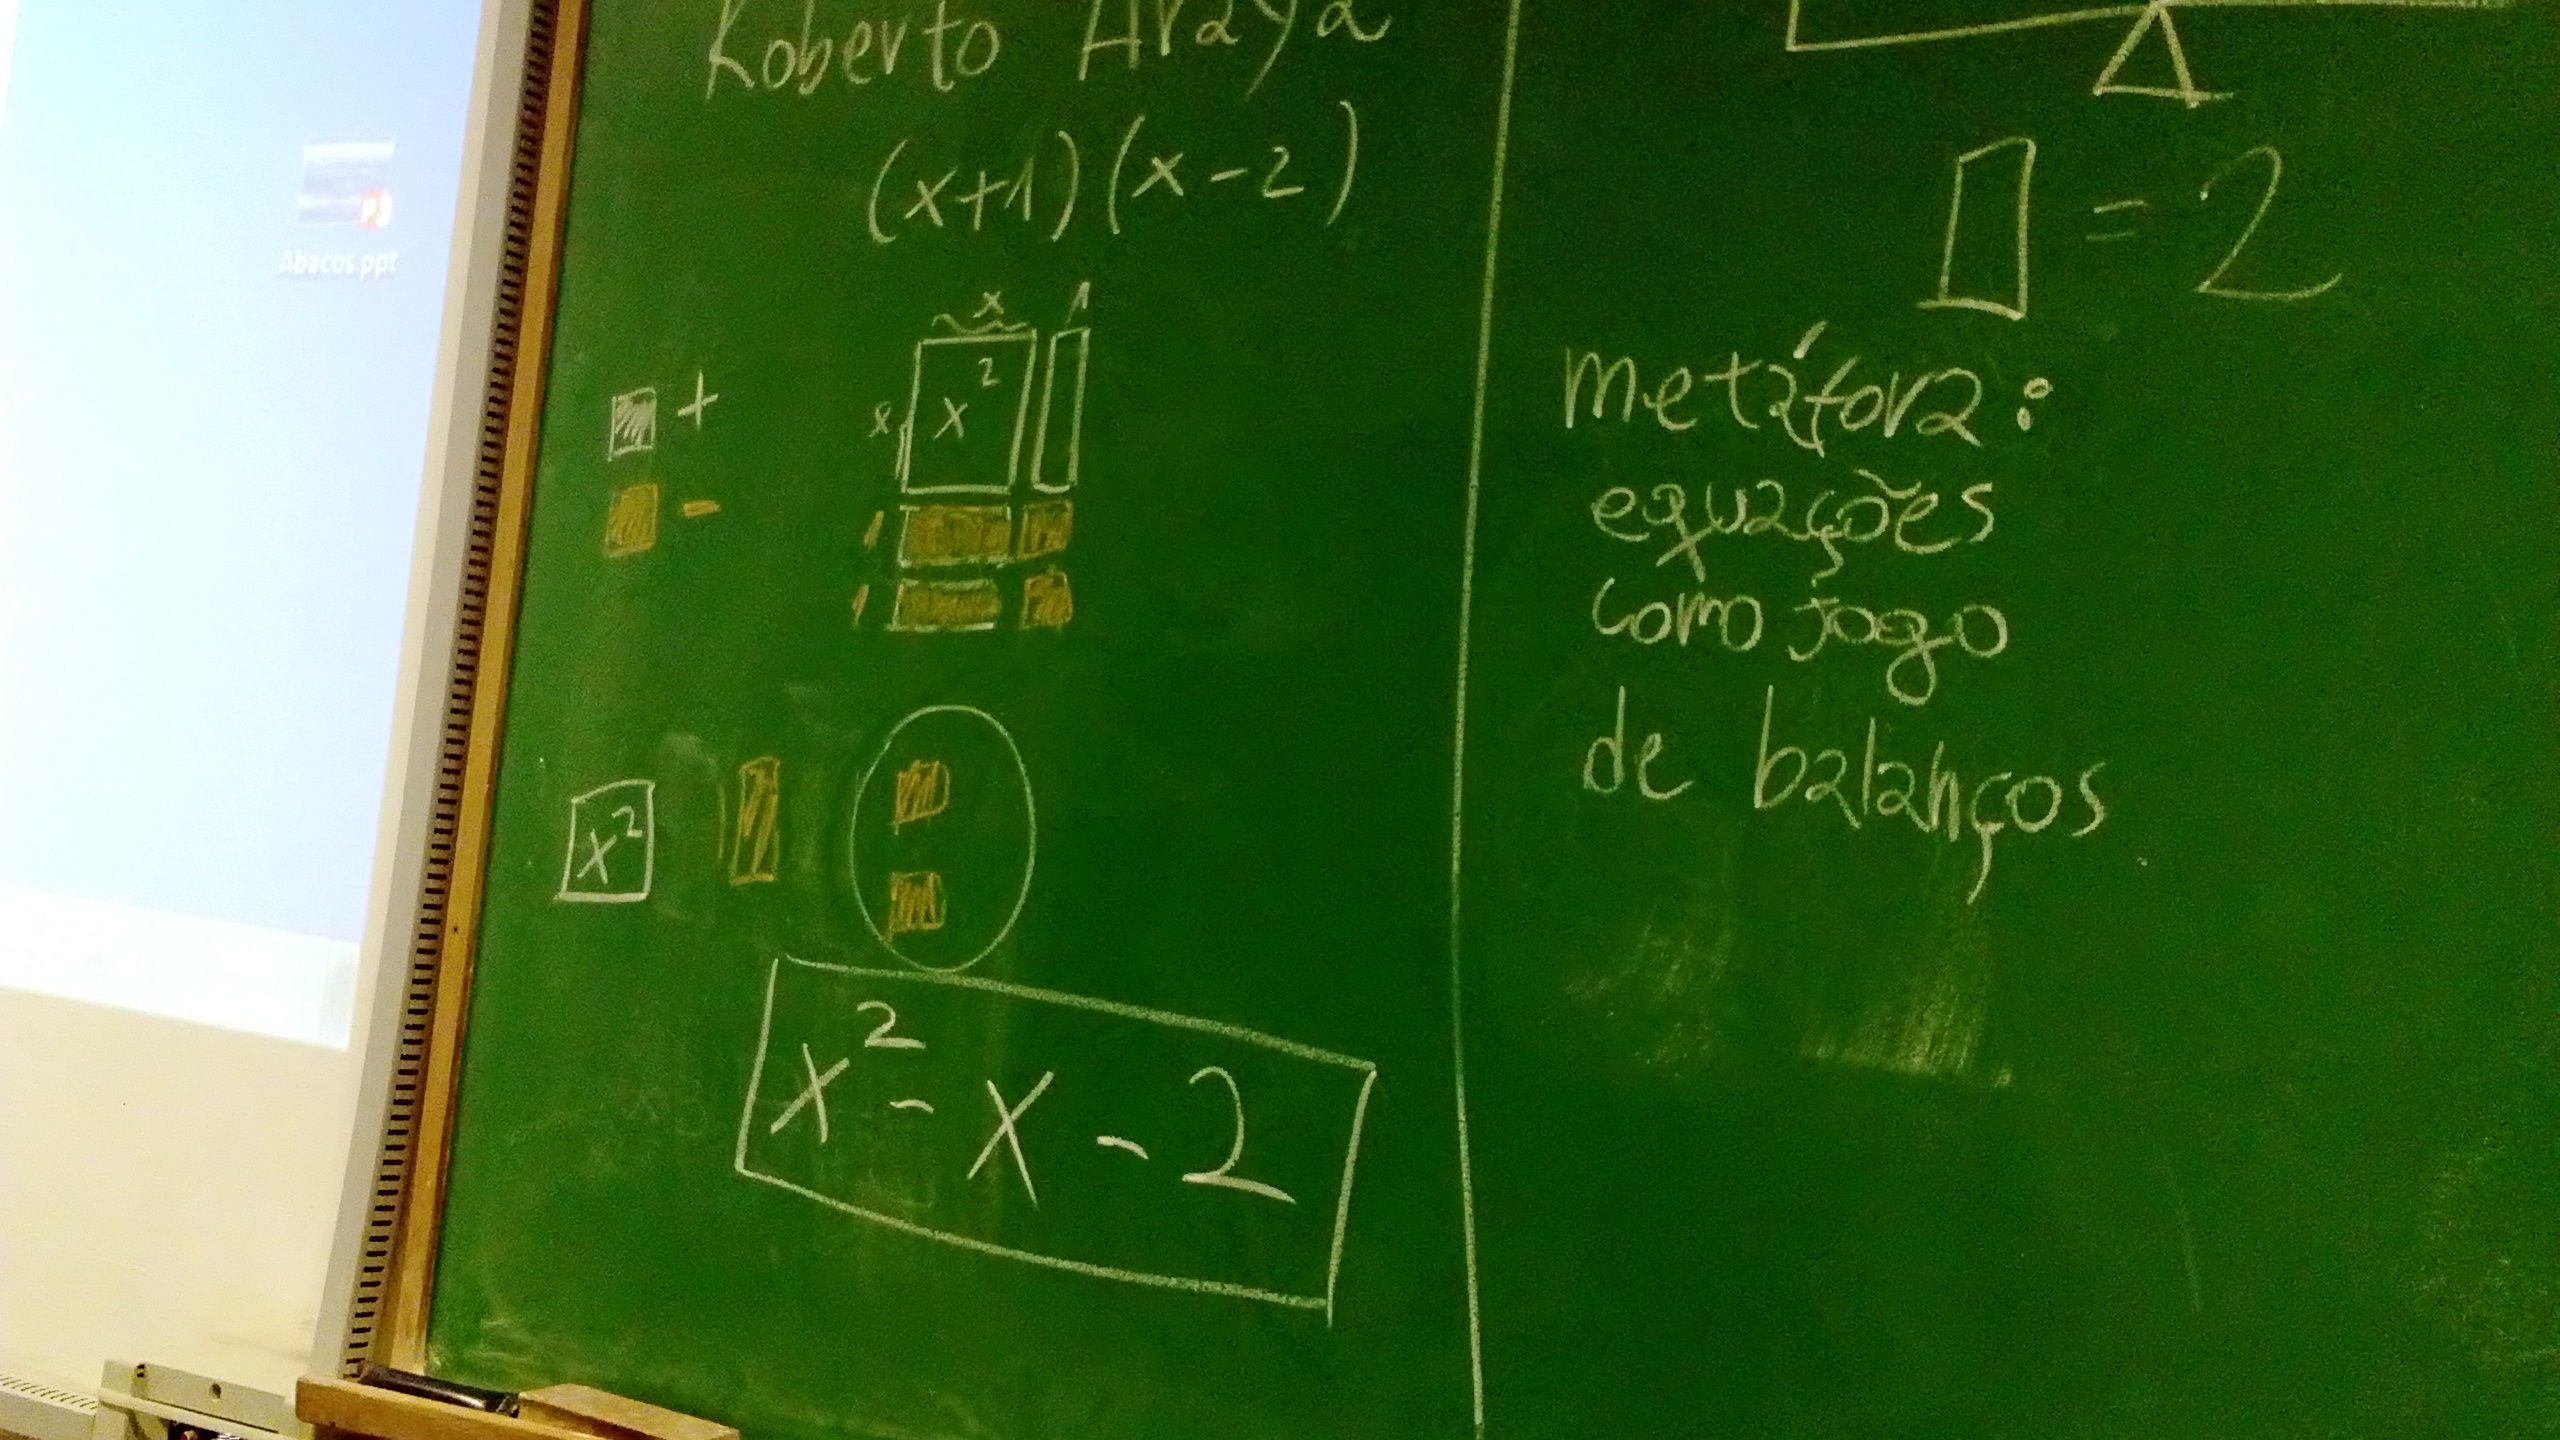 Abacos.ppt
Roberto Araya
(x+1)(x-2)
x 1
x x²
+
-
1
1
x²
x² - x - 2
= 2
metáfora:
equações
como jogo
de balanços